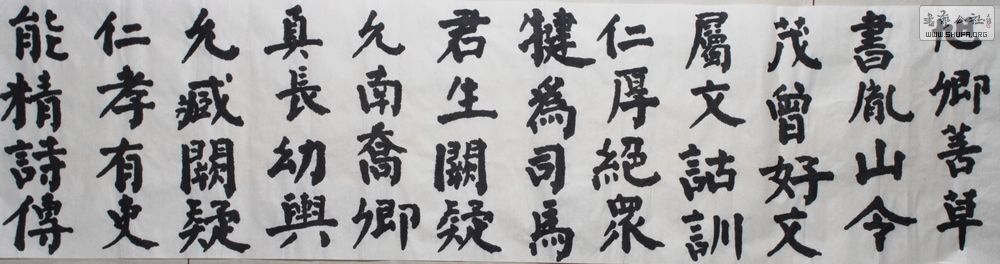 卿善草
書胤山令
茂曾好文
屬文詁訓
仁厚絕衆
犍爲司馬
君生闕疑
允南喬卿
真長幼輿
允臧闕疑
仁孝有史
能精詩傳
WWW.SHUFA.ORG